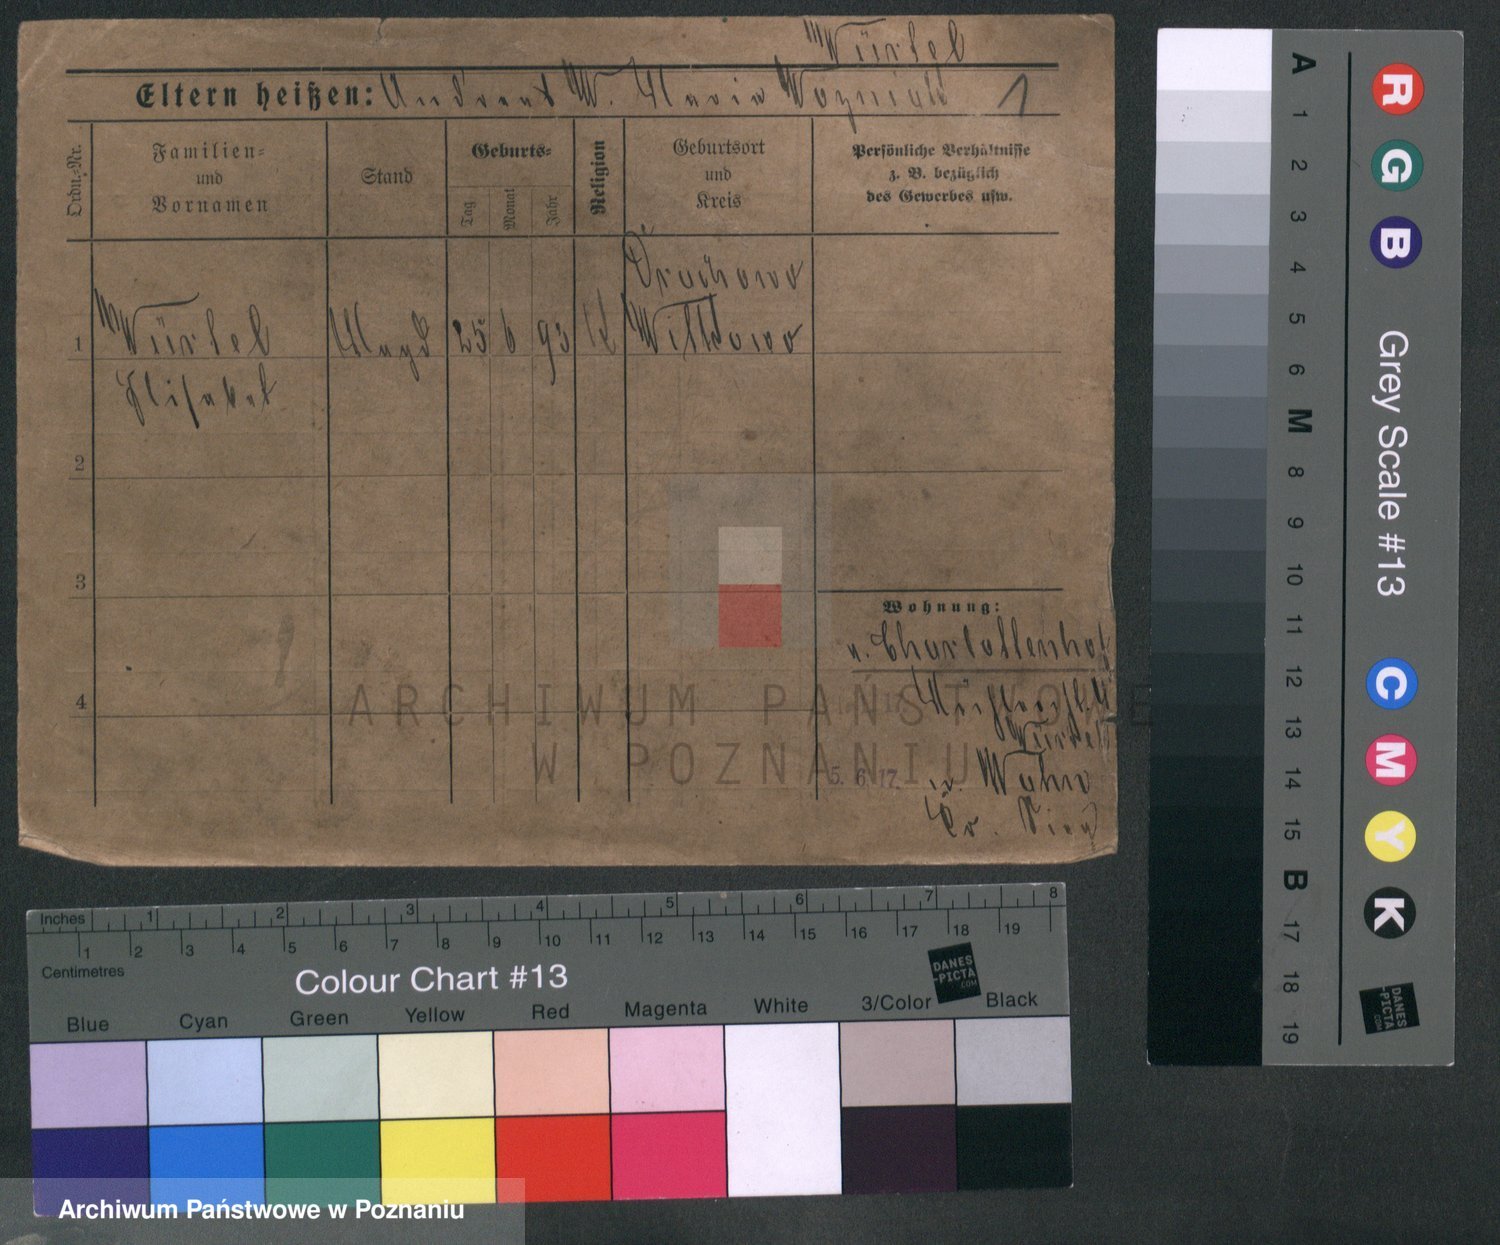 Würfel
Eltern heißen: Andreas W. Maria Wozniak 1
Ordn.-Nr.
Familien-
und
Vornamen
Stand
Geburts-
Tag
Monat
Jahr
Religion
Geburtsort
und
Kreis
Persönliche Verhältnisse
z. B. bezüglich
des Gewerbes usw.
Drachowo
1 Würfel Magd 25 6 93 Witkowo
Elisabet
2
3
4
Wohnung:
v. Charlottenhof
5. 6. 17.
ARCHIWUM PAŃSTWOWE
W POZNANIU
Inches 1 2 3 4 5 6 7 8
1 2 3 4 5 6 7 8 9 10 11 12 13 14 15 16 17 18 19
Centimetres
Colour Chart #13
DANES
-PICTA
.COM
Blue Cyan Green Yellow Red Magenta White 3/Color Black
Archiwum Państwowe w Poznaniu
A 1 2 3 4 5 6 M 8 9 10 11 12 13 14 15 B 17 18 19
R G B
Grey Scale #13
C M Y K
DANES
-PICTA
.COM